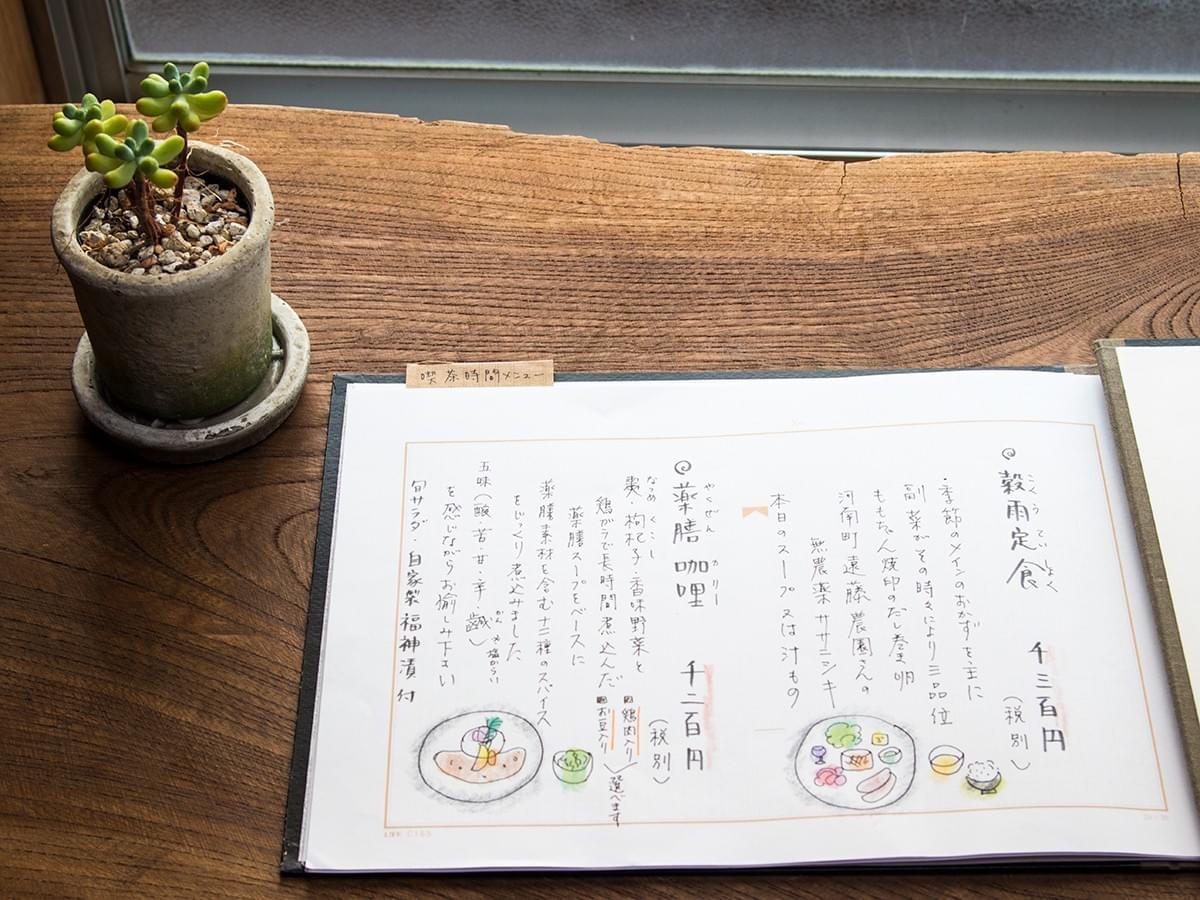 喫茶時間メニュー
穀雨定食
こくうていしょく
千三百円
（税別）
・季節のメインのおかずを主に
副菜がその時々により三品位
ももちゃん焼印のだし巻き卵
河南町遠藤農園さんの
無農薬ササニシキ
本日のスープ又は汁もの
薬膳咖哩
やくぜんカリー
千二百円
（税別）
なつめ くこし
棗・枸杞子・香味野菜と
鶏ガラで長時間煮込んだ
薬膳スープをベースに
薬膳素材を含む十二種のスパイス
をじっくり煮込みました
五味（酸・苦・甘・辛・鹹）
かん
塩からい
を感じながらお愉しみ下さい
旬サラダ・自家製福神漬付
鶏肉入り
お豆入り
選べます
LIFE C155